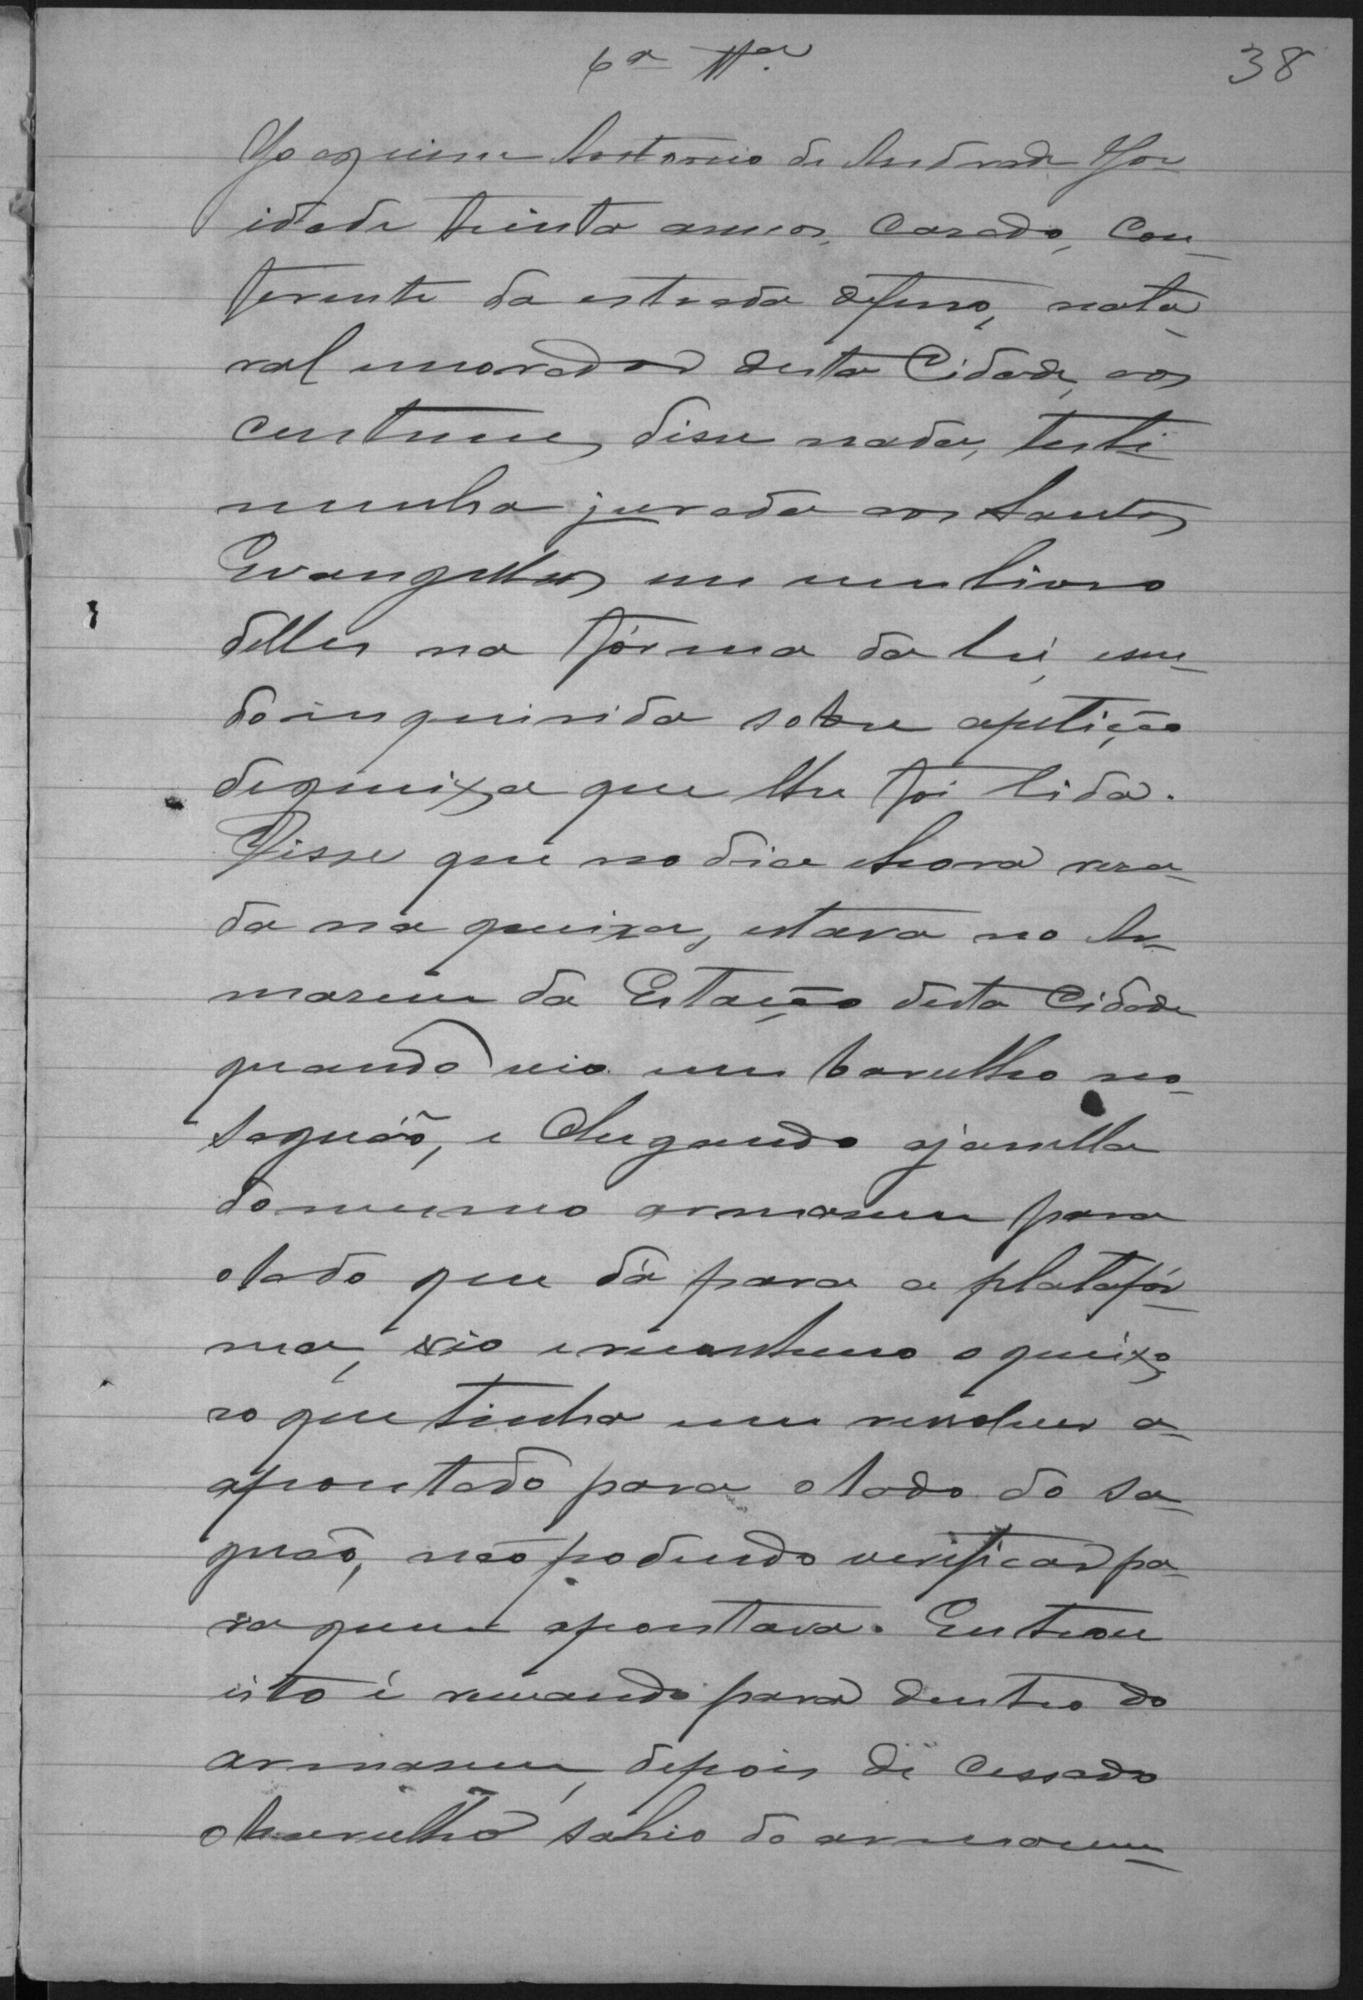 6ª Tª
38
Joaquim Antonio de Andrade
idade trinta annos, casado, con-
ferente da estrada de ferro, natu-
ral morador desta Cidade, aos
custumes disse nada, testi-
munha jurada aos Santos
Evangelhos em um livro
delles na fórma da lei, e sen-
do inquirida sobre a petição
de queixa que lhe foi lida.
Disse que no dia e hora reza-
da na queixa, estava no Ar-
masem da Estação desta Cidade
quando vio um barulho no
saguão, e chegando a janella
do mesmo armasem para
o lado que dá para a platafór-
ma, vio o queixo
so que tinha um revolver a-
apontado para o lado do sa-
guão, não podendo verificar pa-
ra quem apontava. Entrou
isto é recuando para dentro do
armasem, depois de cessado
o barulho sahio do armasem